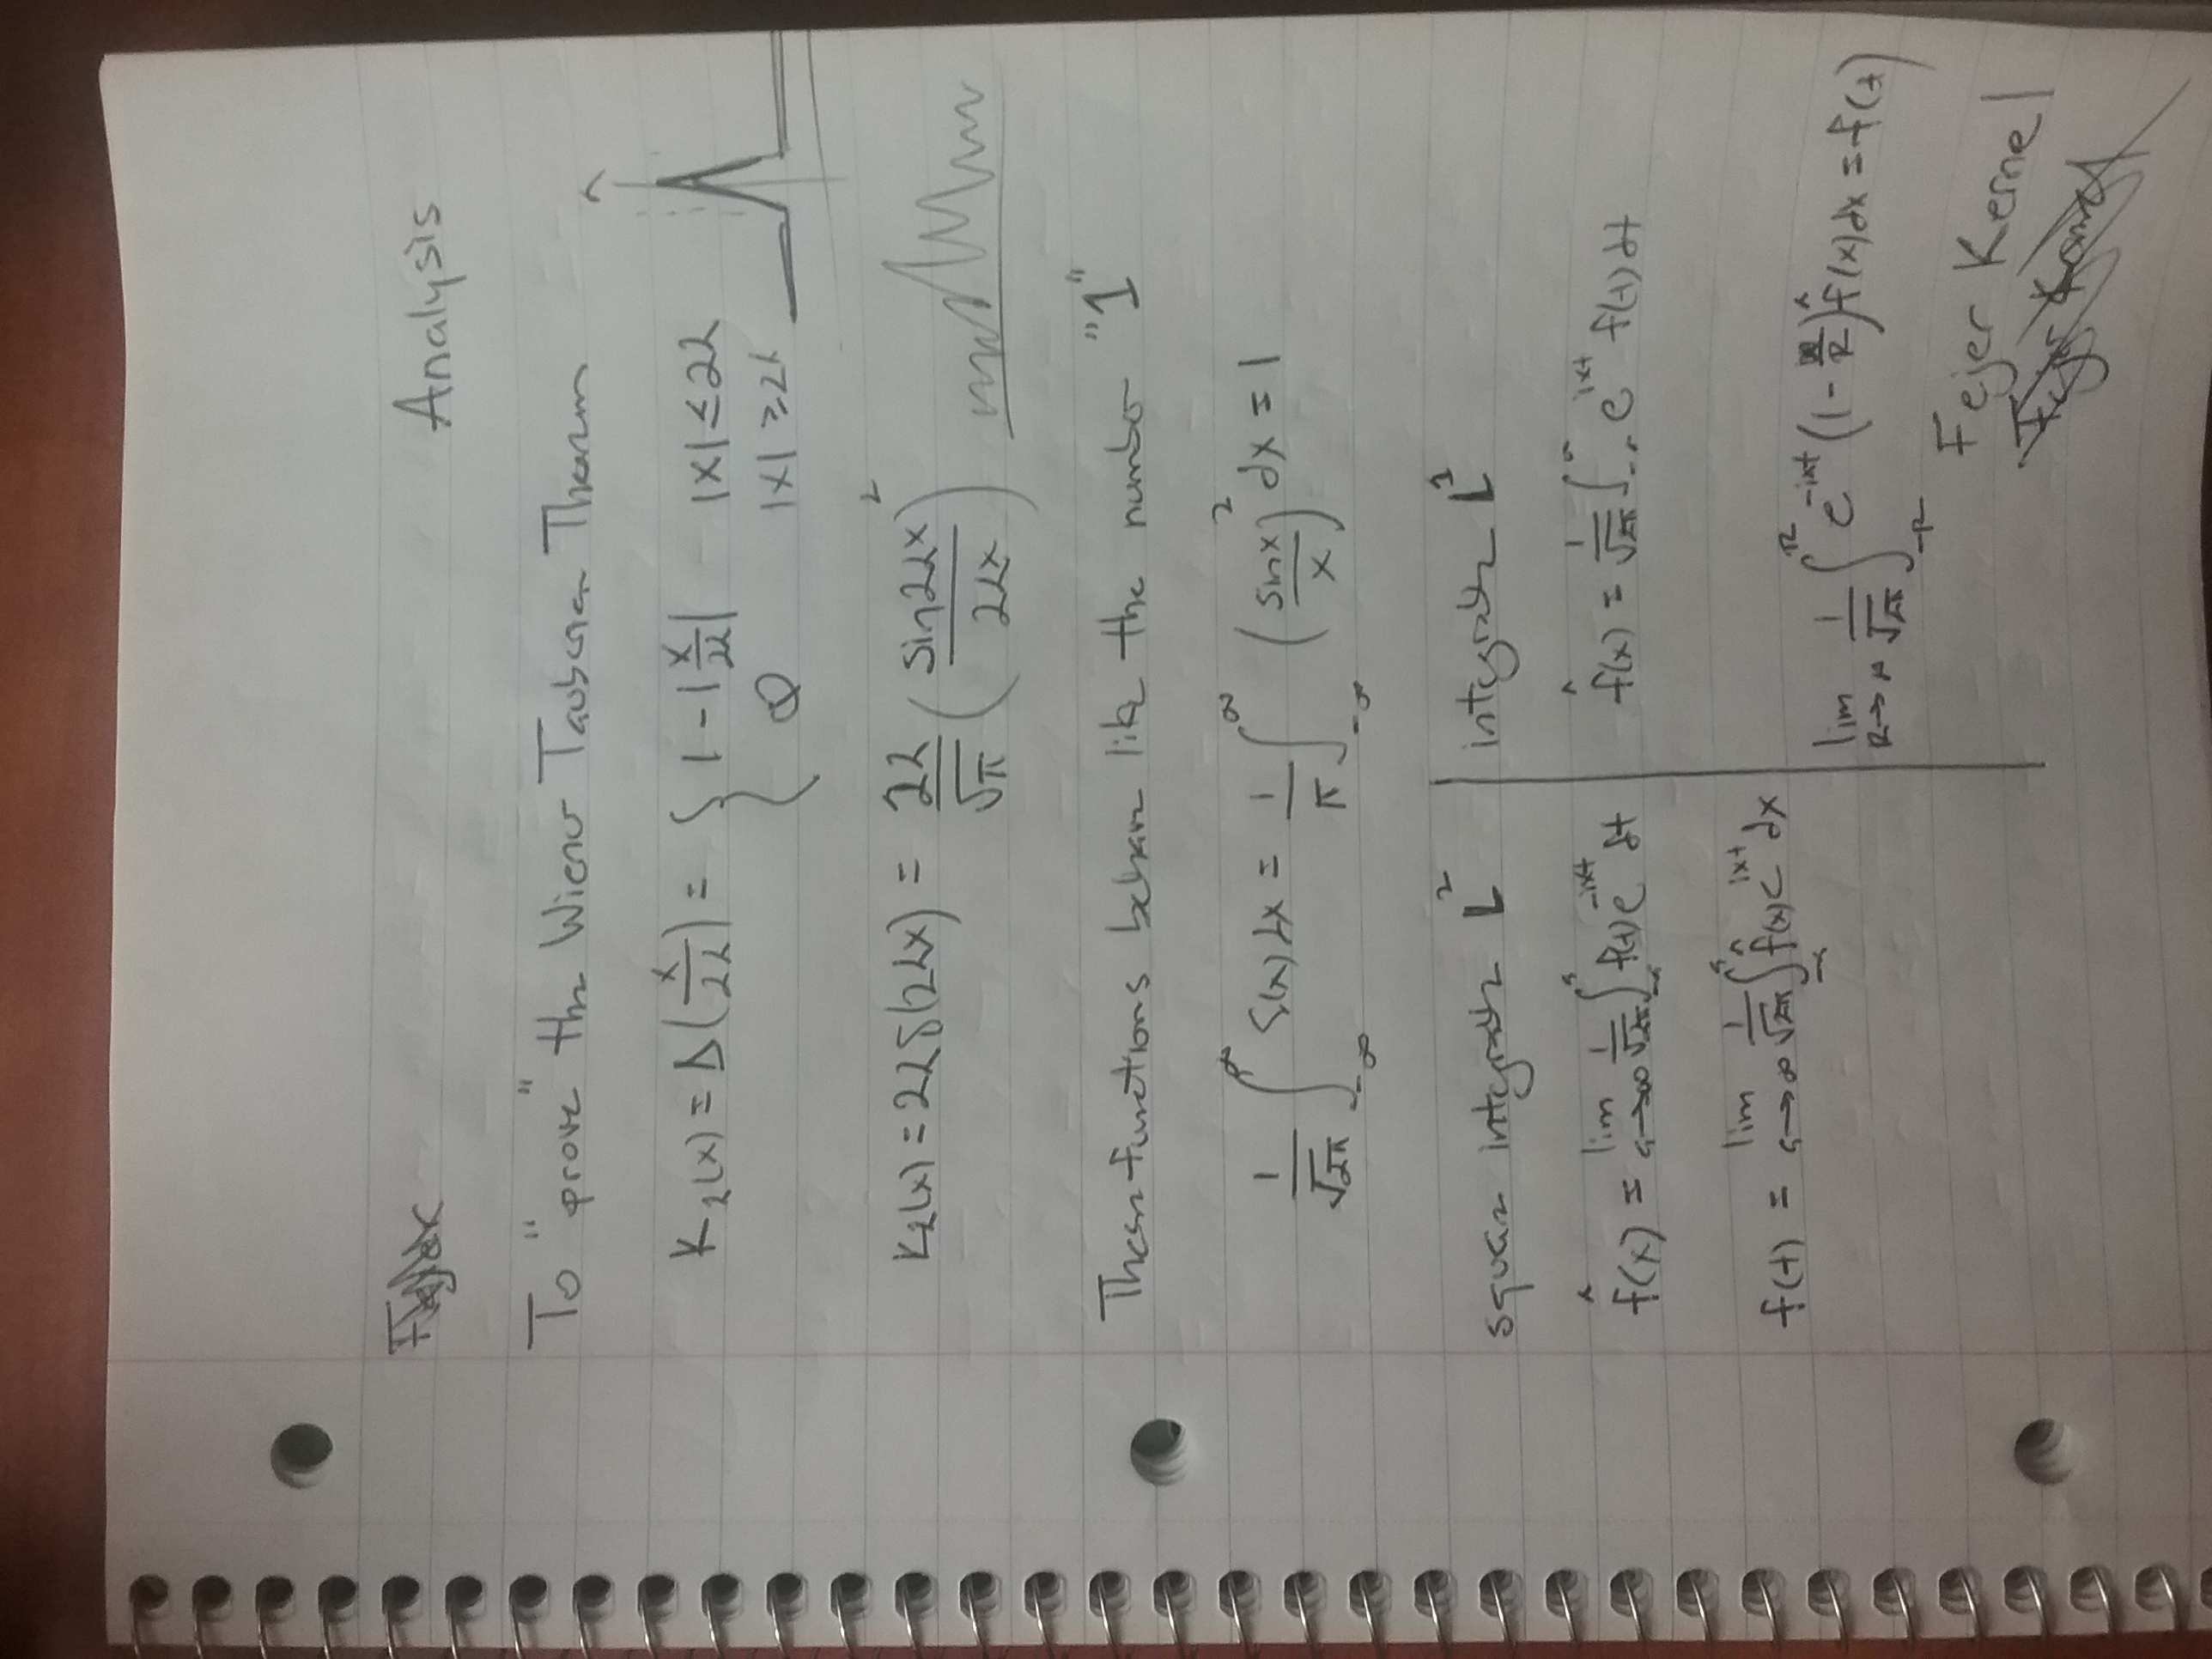 Analysis
To "prove" the Wiener Tauberian Theorem
K_λ(x) = Δ(x/2λ) = { 1 - |x/2λ| |x| ≤ 2λ
0 |x| ≥ 2λ
K_λ(x) = 2λδ(2λx) = 2λ/√π (sin2λx / 2λx)^2
These functions behave like the number "1"
1/√2π ∫_{-∞}^{∞} δ(x) dx = 1/π ∫_{-∞}^{∞} (sinx/x)^2 dx = 1
square integrable L^2
f̂(x) = lim_{a→∞} 1/√2π ∫_{-a}^{a} f(t) e^{-ixt} dt
f(t) = lim_{a→∞} 1/√2π ∫_{-a}^{a} f̂(x) e^{ixt} dx
integrable L^1
f̂(x) = 1/√2π ∫_{-∞}^{∞} e^{ixt} f(t) dt
lim_{R→∞} 1/√2π ∫_{-R}^{R} e^{-ixt} (1 - |x|/R) f̂(x) dx = f(t)
Fejer Kernel